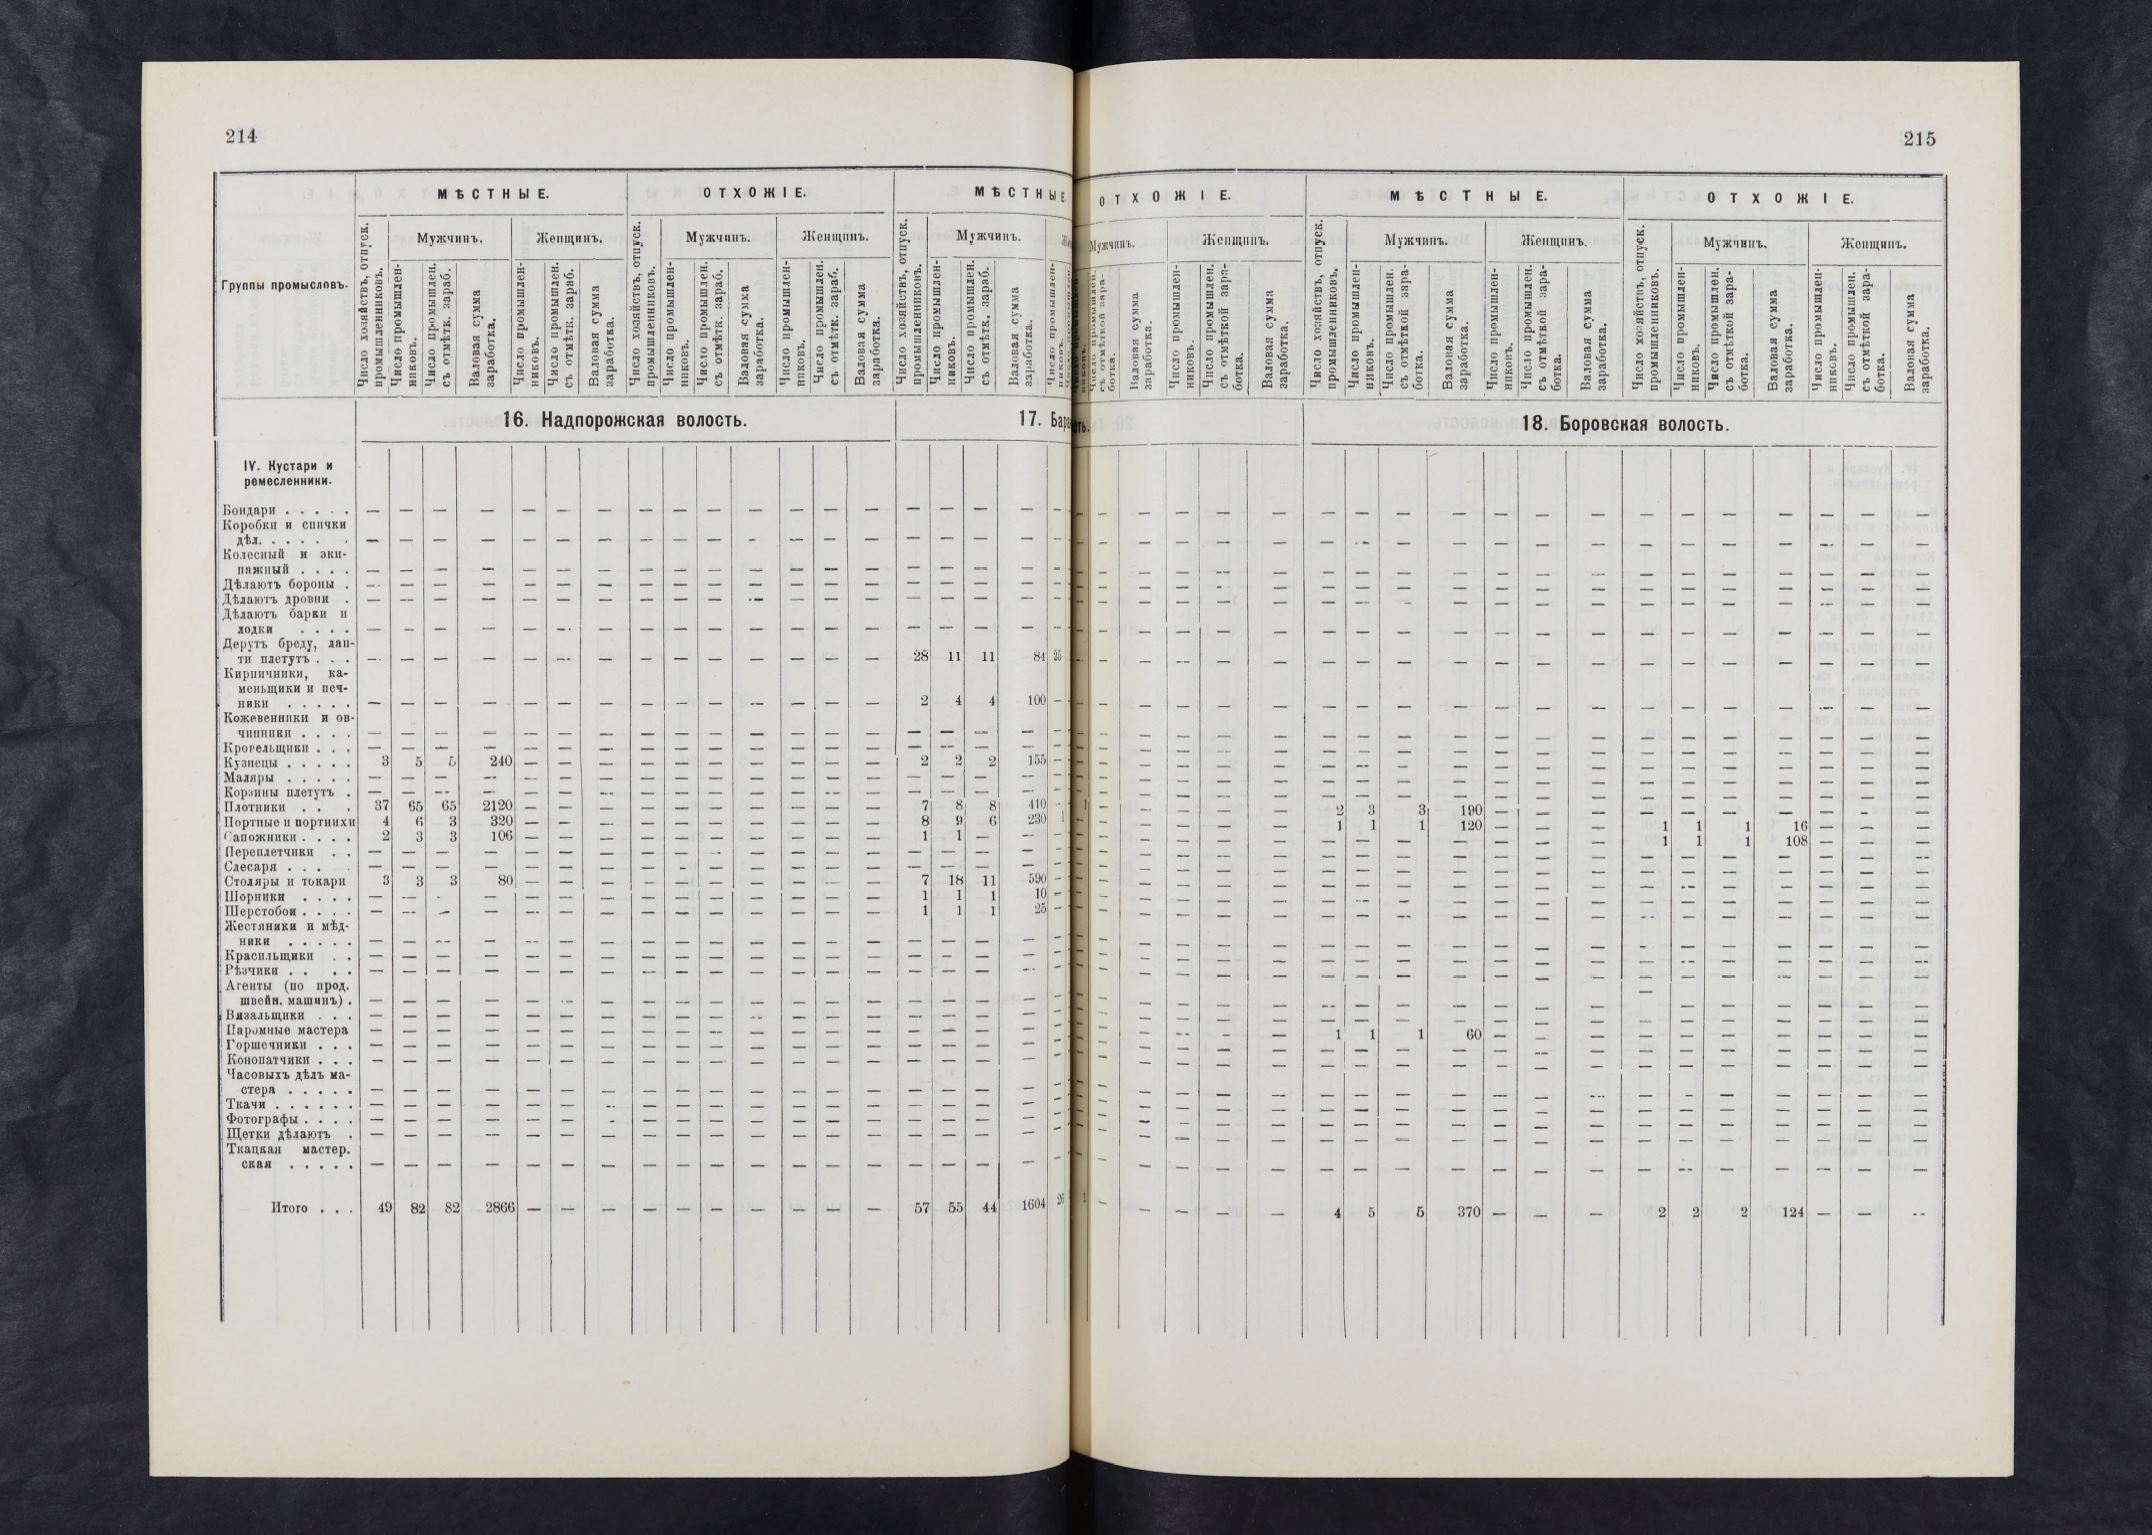 214
МѢСТНЫЕ. ОТХОЖІЕ. МѢСТНЫЕ
Группы промысловъ.
Число хозяйствъ, отпуск. промышленниковъ.
Мужчинъ. Женщинъ. Мужчинъ. Женщинъ. Мужчинъ.
Число промышленниковъ.
Число промышлен. съ отмѣтк. зараб.
Валовая сумма заработка.
Число промышленниковъ.
Число промышлен. съ отмѣтк. зараб.
Валовая сумма заработка.
Число хозяйствъ, отпуск. промышленниковъ.
Число промышленниковъ.
Число промышлен. съ отмѣтк. зараб.
Валовая сумма заработка.
Число промышленниковъ.
Число промышлен. съ отмѣтк. зараб.
Валовая сумма заработка.
Число хозяйствъ, отпуск. промышленниковъ.
Число промышленниковъ.
Число промышлен. съ отмѣтк. зараб.
Валовая сумма заработка.
16. Надпорожская волость. 17.
IV. Кустари и
ремесленники.
Бондари . . . . .
Коробки и спички
дѣл. . . . . .
Колесный и эки-
пажный . . . .
Дѣлаютъ бороны .
Дѣлаютъ дровни .
Дѣлаютъ барки и
лодки . . . .
Дерутъ бреду, лап-
ти плетутъ . . . 28 11 11 84 25
Кирпичники, ка-
меньщики и печ-
ники . . . . . 2 4 4 100
Кожевенники и ов-
чинники . . . .
Кровельщики . . .
Кузнецы . . . . . 3 5 5 240 2 2 2 155
Маляры . . . . .
Корзины плетутъ .
Плотники . . . 37 65 65 2120 7 8 8 410
Портные и портнихи 4 6 3 320 8 9 6 230 1
Сапожники . . . . 2 3 3 106 1 1 —
Переплетчики . .
Слесаря . . .
Столяры и токари 3 3 3 80 7 18 11 590
Шорники . . . . 1 1 1 10
Шерстобои . . . . 1 1 1 25
Жестяники и мѣд-
ники . . . . .
Красильщики . .
Рѣзчики . . . .
Агенты (по прод.
швейн. машинъ) .
Вязальщики . . .
Паромные мастера
Горшечники . . .
Конопатчики . . .
Часовыхъ дѣлъ ма-
стера . . . . .
Ткачи . . . . . .
Фотографы . . . .
Щетки дѣлаютъ .
Ткацкая мастер.
ская . . . . .
Итого . . . 49 82 82 2866 — — — — — — — — — — 57 55 44 1604 26
215
ОТХОЖІЕ. МѢСТНЫЕ. ОТХОЖІЕ.
Мужчинъ. Женщинъ. Мужчинъ. Женщинъ. Мужчинъ. Женщинъ.
Число промышлен. съ отмѣткой заработка.
Валовая сумма заработка.
Число промышленниковъ.
Число промышлен. съ отмѣткой заработка.
Валовая сумма заработка.
Число хозяйствъ, отпуск. промышленниковъ.
Число промышленниковъ.
Число промышлен. съ отмѣткой заработка.
Валовая сумма заработка.
Число промышленниковъ.
Число промышлен. съ отмѣткой заработка.
Валовая сумма заработка.
Число хозяйствъ, отпуск. промышленниковъ.
Число промышленниковъ.
Число промышлен. съ отмѣткой заработка.
Валовая сумма заработка.
Число промышленниковъ.
Число промышлен. съ отмѣткой заработка.
Валовая сумма заработка.
18. Боровская волость.
1 2 3 3 190
1 1 1 120 1 1 1 16
1 1 1 108
1 1 1 60
1 — — — — — 4 5 5 370 — — — 2 2 2 124 — — —